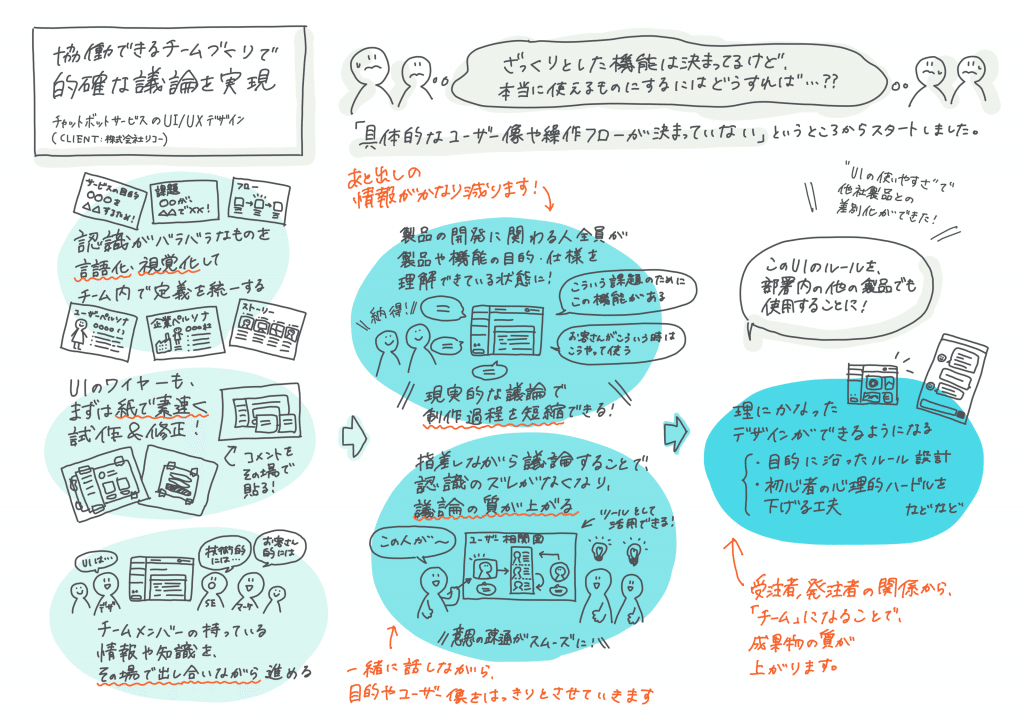 協働できるチームづくりで
的確な議論を実現
チャットボットサービスのUI/UXデザイン
(CLIENT:株式会社リコー)
ざっくりとした機能は決まってるけど、
本当に使えるものにするにはどうすれば…??
「具体的なユーザー像や操作フローが決まっていない」というところからスタートしました。
サービスの目的
○○を
△△するため!
課題
○○が、
△△で××!
フロー
認識がバラバラなものを
言語化、視覚化して
チーム内で定義を統一する
ユーザーペルソナ
企業ペルソナ
ストーリー
UIのワイヤーも、
まずは紙で素速く
試作&修正!
コメントを
その場で
貼る!
UIは…
技術的
には…
お客さん
的には
デザ
SE
マーケ
チームメンバーの持っている
情報や知識を、
その場で出し合いながら進める
あと出しの
情報がかなり減ります!
製品の開発に関わる人全員が
製品や機能の目的・仕様を
理解できている状態に!
納得!!
こういう課題のために
この機能がある
お客さんがこういう時は
こうやって使う
現実的な議論で
創作過程を短縮できる!
指差しながら議論することで、
認識のズレがなくなり、
議論の質が上がる
ツールとして
活用できる!
この人が〜
ユーザー相関図
意思の疎通がスムーズに!
一緒に話しながら、
目的やユーザー像をはっきりとさせていきます
"UIの使いやすさ"で
他社製品との
差別化ができた!
このUIのルールを、
部署内の他の製品でも
使用することに!
理にかなった
デザインができるようになる
・目的に沿ったルール設計
・初心者の心理的ハードルを
下げる工夫
などなど
受注者/発注者の関係から、
「チーム」になることで、
成果物の質が
上がります。